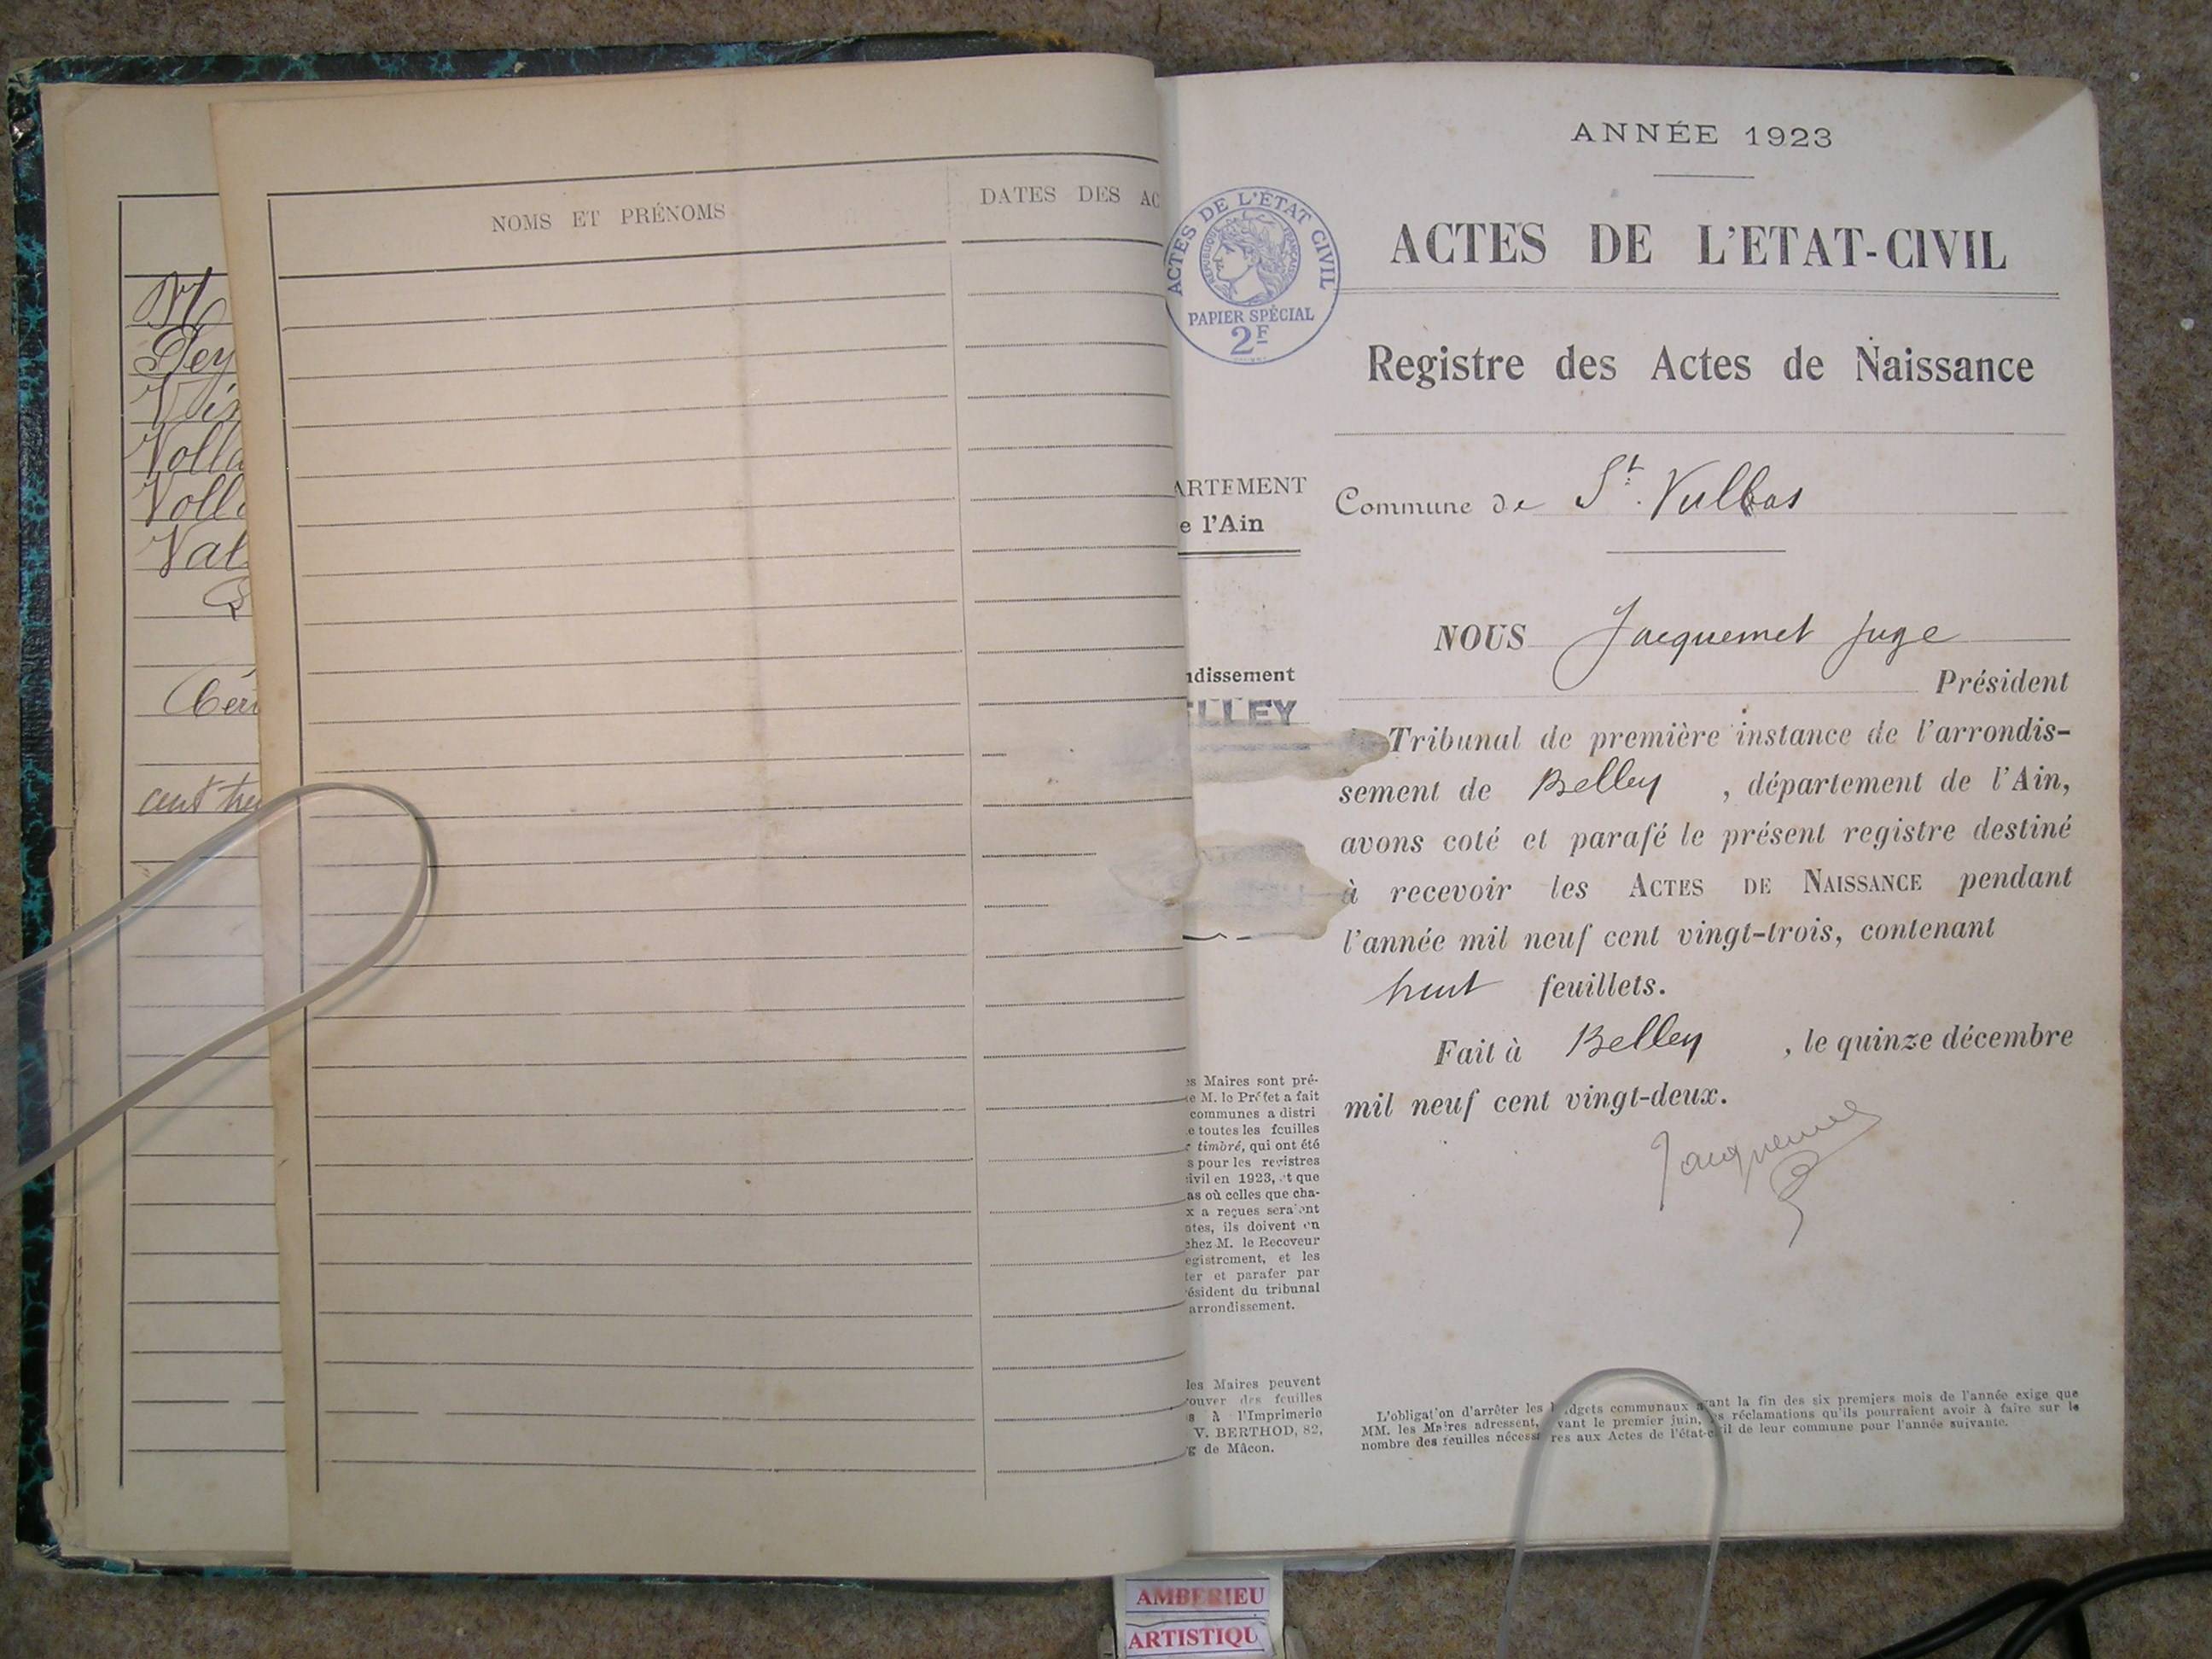 NOMS ET PRÉNOMS
DATES DES AC
Pey
Volla
Voll
Val
cent
ANNÉE 1923
ACTES DE L'ETAT-CIVIL
ACTES DE L'ÉTAT CIVIL
RÉPUBLIQUE FRANÇAISE
PAPIER SPÉCIAL
2F
Registre des Actes de Naissance
ARTEMENT
e l'Ain
Commune de St. Vulbas
NOUS Jacquemet juge
Président
ndissement
ELLEY
Tribunal de première instance de l'arrondis-
sement de Belley , département de l'Ain,
avons coté et parafé le présent registre destiné
à recevoir les ACTES DE NAISSANCE pendant
l'année mil neuf cent vingt-trois, contenant
huit feuillets.
Fait à Belley , le quinze décembre
mil neuf cent vingt-deux.
Jacquemet
es Maires sont pré-
e M. le Préfet a fait
communes a distri
e toutes les feuilles
timbré, qui ont été
s pour les registres
ivil en 1923, et que
as où celles que cha-
x a reçues seraient
ntes, ils doivent en
chez M. le Receveur
egistrement, et les
ter et parafer par
ésident du tribunal
arrondissement.
les Maires peuvent
rouver des feuilles
s à l'Imprimerie
V. BERTHOD, 82,
g de Mâcon.
L'obligation d'arrêter les budgets communaux avant la fin des six premiers mois de l'année exige que
MM. les Maires adressent, avant le premier juin, les réclamations qu'ils pourraient avoir à faire sur le
nombre des feuilles nécessaires aux Actes de l'état-civil de leur commune pour l'année suivante.
AMBERIEU
ARTISTIQU